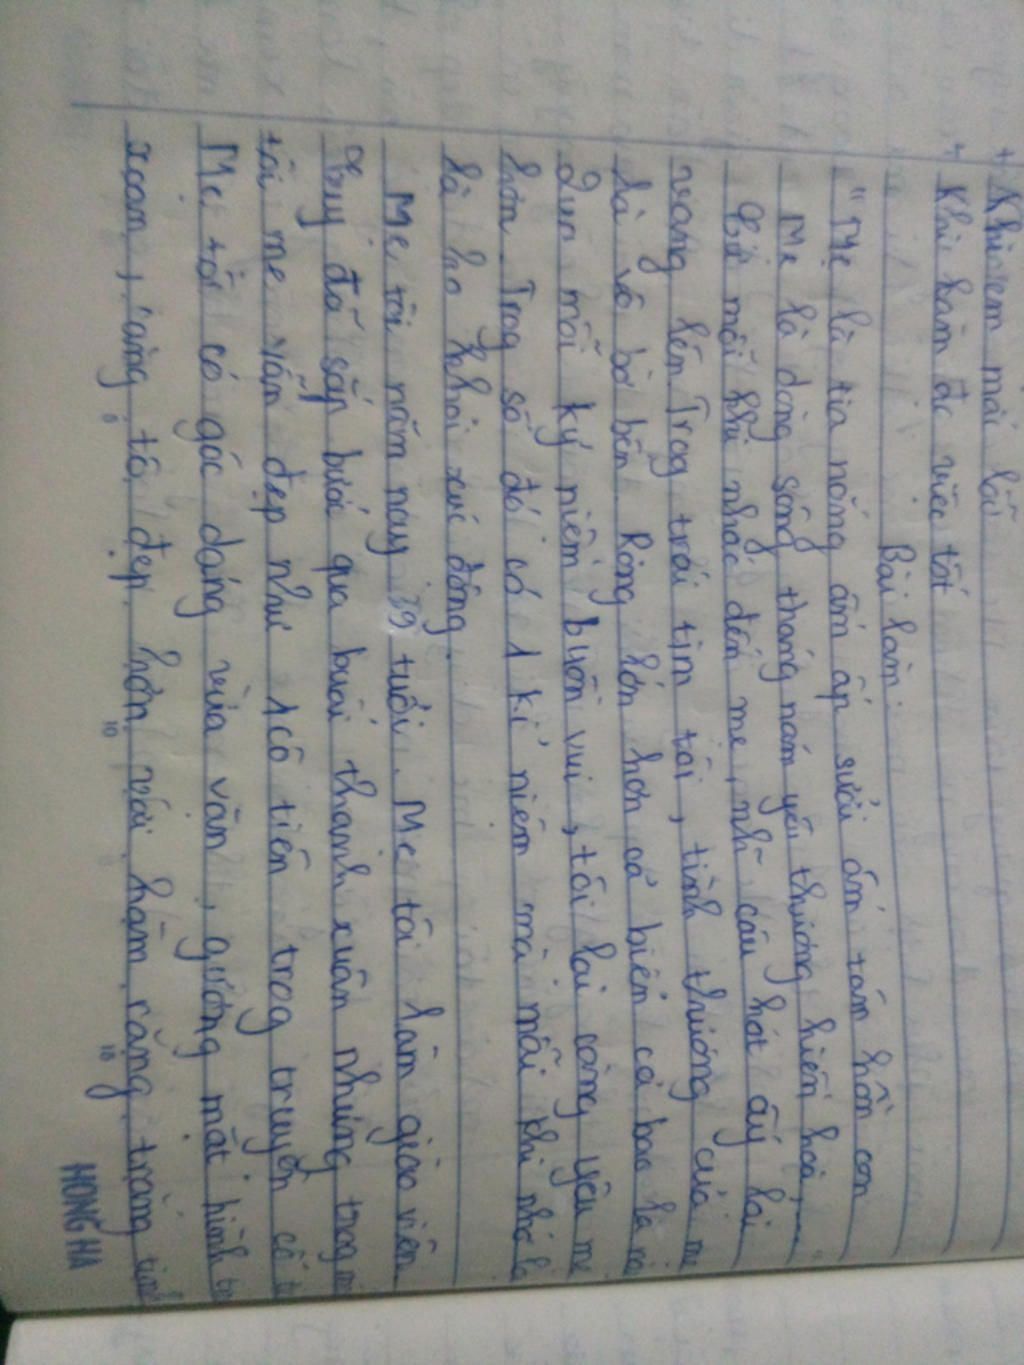 + Khi em mắc lỗi
+ Khi làm đc việc tốt
Bài làm
"Mẹ là tia nắng ấm áp sưởi ấm tâm hồn con
Mẹ là dòng sông tháng năm yêu thương hiền hoà,..."
Cứ mỗi khi nhắc đến mẹ, nhữ câu hát ấy lại
vang lên. Trog trái tim tôi, tình thương của mẹ
là vô bờ bến. Rộng lớn hơn cả biển cả bao la
Qua mỗi ký niệm buồn vui, tôi lại càng yêu mẹ
hơn. Trog số đó có 1 kỉ niệm mà mỗi khi nhớ lại
là ko khỏi xúc động.
Mẹ tôi năm nay 39 tuổi. Mẹ tôi làm giáo viên.
Tuy đã sắp bước qua buổi thanh xuân nhưng trog
tôi mẹ vẫn đẹp như 1 cô tiên trog truyện cổ
Mẹ tôi có góc dáng vừa vặn, gương mặt hình
xoan, càng tô đẹp hơn với hàm răng trắng
HONG HA